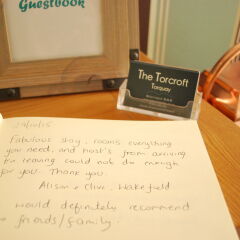 Guestbook
The Torcroft
Torquay
29/10/15
Fabulous stay, rooms everything
you need, and host's from arriving
to leaving could not do enough
for you. Thank you.
Alison & Clive, Wakefield
Would definitely recommend
to friends/family.